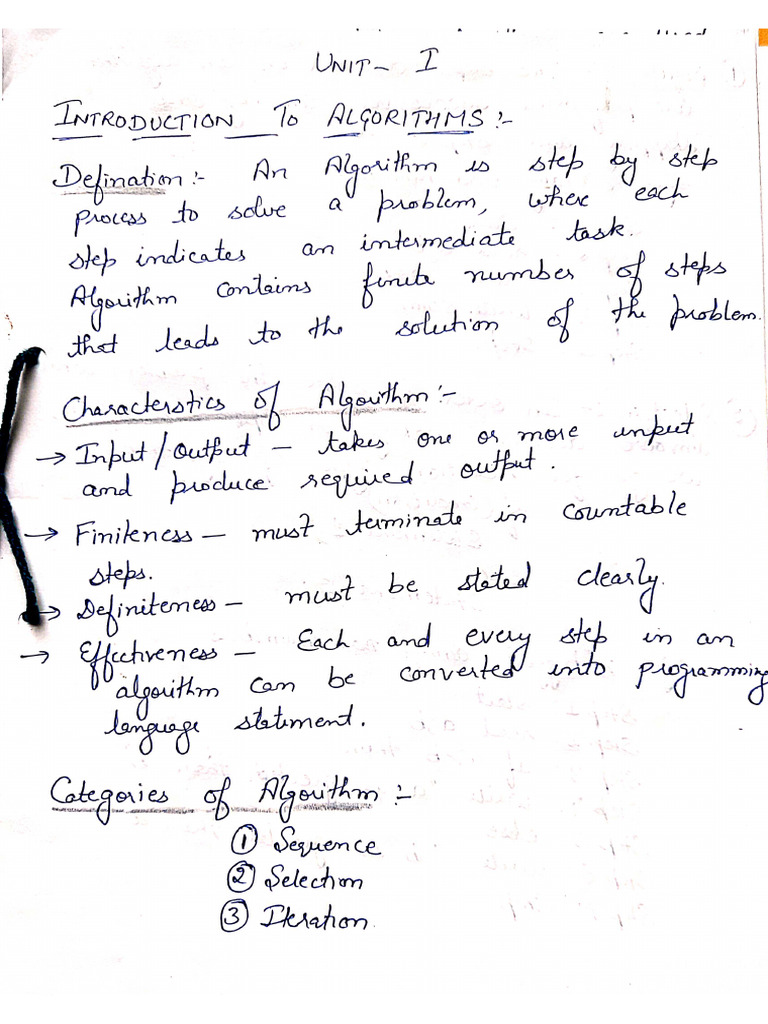 UNIT- I
INTRODUCTION TO ALGORITHMS :-
Defination :- An Algorithm is step by step
process to solve a problem, where each
step indicates an intermediate task.
Algorithm contains finite number of steps
that leads to the solution of the problem.
Characterstics of Algorithm :-
→ Input/Output - takes one or more input
and produce required output.
→ Finiteness - must terminate in countable
steps.
→ Definiteness - must be stated clearly.
→ Effectiveness - Each and every step in an
algorithm can be converted into programming
language statement.
Categories of Algorithm :-
① Sequence
② Selection
③ Iteration.